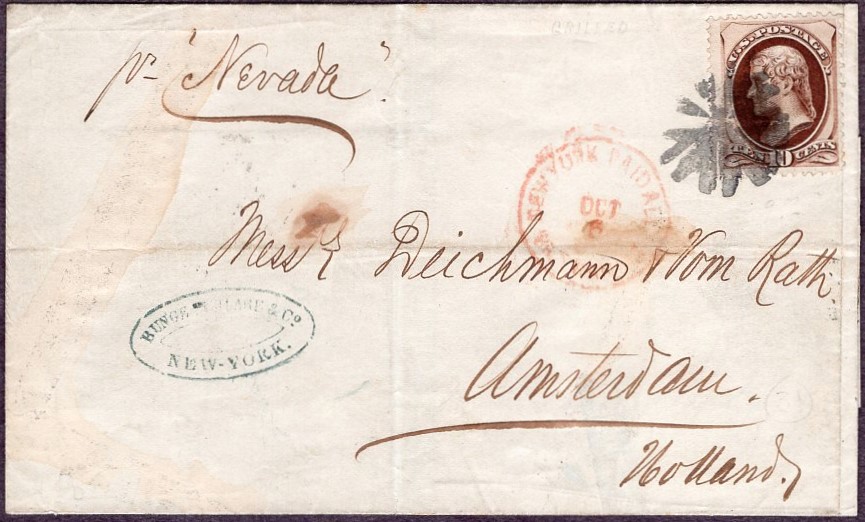 GRILLED
pr "Nevada".
U.S. POSTAGE
TEN 10 CENTS
NEW YORK PAID ALL
OCT
6
Messrs Deichmann & Vom Rath.
BUNGE & Co
NEW-YORK.
Amsterdam.
Holland.